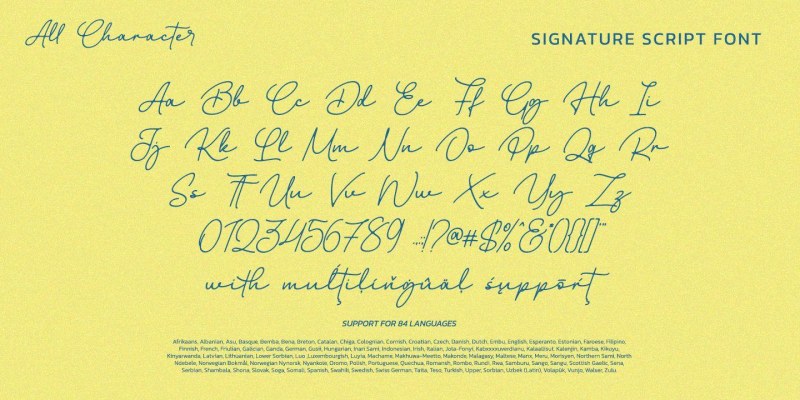 All Character
SIGNATURE SCRIPT FONT
Aa Bb Cc Dd Ee Ff Gg Hh Ii
Jj Kk Ll Mm Nn Oo Pp Qq Rr
Ss Tt Uu Vv Ww Xx Yy Zz
0123456789 .,:;!?@#$%^&*(){}[]"'
with muļţįlïňġûāļ śųppōŕţ
SUPPORT FOR 84 LANGUAGES
Afrikaans, Albanian, Asu, Basque, Bemba, Bena, Breton, Catalan, Chiga, Colognian, Cornish, Croatian, Czech, Danish, Dutch, Embu, English, Esperanto, Estonian, Faroese, Filipino,
Finnish, French, Friulian, Galician, Ganda, German, Gusii, Hungarian, Inari Sami, Indonesian, Irish, Italian, Jola-Fonyi, Kabuverdianu, Kalaallisut, Kalenjin, Kamba, Kikuyu,
Kinyarwanda, Latvian, Lithuanian, Lower Sorbian, Luo, Luxembourgish, Luyia, Machame, Makhuwa-Meetto, Makonde, Malagasy, Maltese, Manx, Meru, Morisyen, Northern Sami, North
Ndebele, Norwegian Bokmål, Norwegian Nynorsk, Nyankole, Oromo, Polish, Portuguese, Quechua, Romansh, Rombo, Rundi, Rwa, Samburu, Sango, Sangu, Scottish Gaelic, Sena,
Serbian, Shambala, Shona, Slovak, Soga, Somali, Spanish, Swahili, Swedish, Swiss German, Taita, Teso, Turkish, Upper, Sorbian, Uzbek (Latin), Volapük, Vunjo, Walser, Zulu